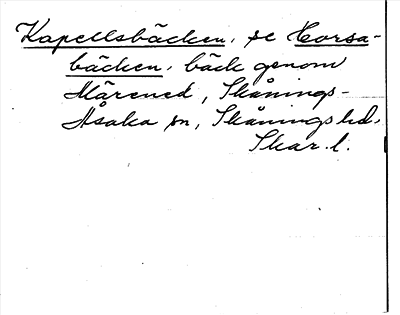 Kapellsbäcken, se Korsa-
bäcken, bäck genom
Mårened, Skånings-
Åsaka sn, Skånings hd,
Skar. l.